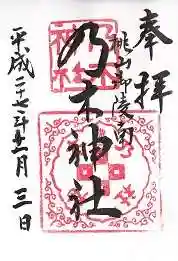 奉拝
桃山御陵前
乃木神社
平成二十七年十一月三日